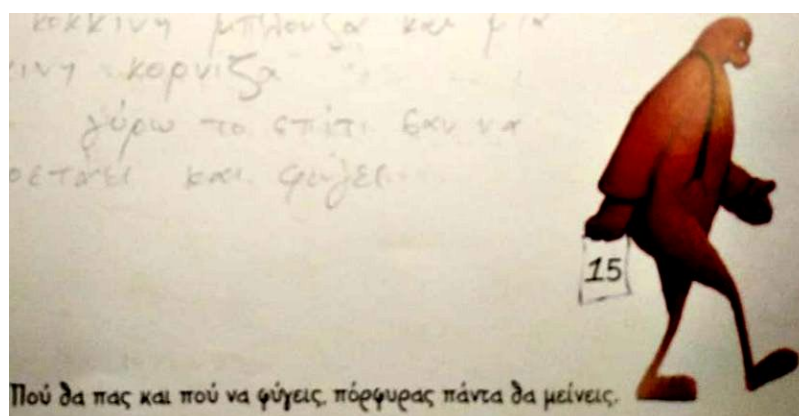 κόκκινη μπλούζα και μια
κινη κορνίζα
γύρω το σπίτι σαν να
και φύγει
15
Πού θα πας και πού να φύγεις, πόρφυρας πάντα θα μείνεις.